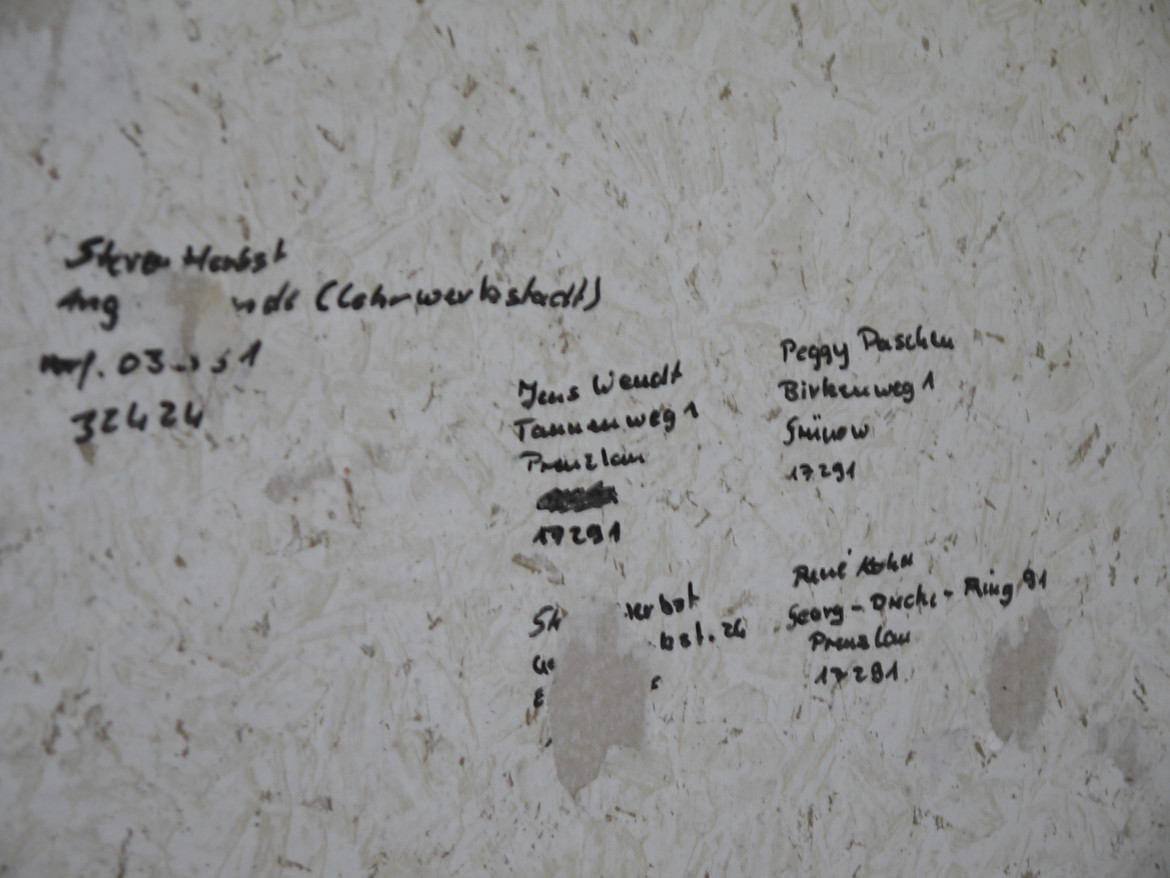 Steven Herbst
Ang nde (Lehrwerkstadt)
32424
Jens Wendt
Tannenweg 1
Prenzlau
17291
Peggy Paschen
Birkenweg 1
Grünow
17291
St erbst
bst. 24
René Kohn
Georg-Dreke-Ring 91
Prenzlau
17291